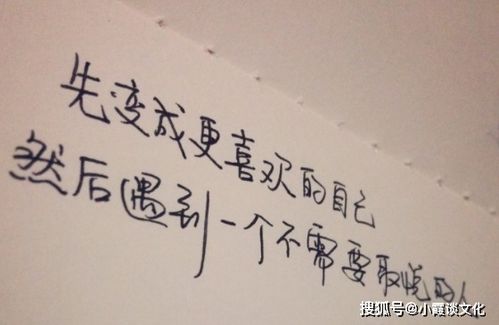 先变成更喜欢的自己
然后遇到一个不需要取悦的人
搜狐号@小霞谈文化